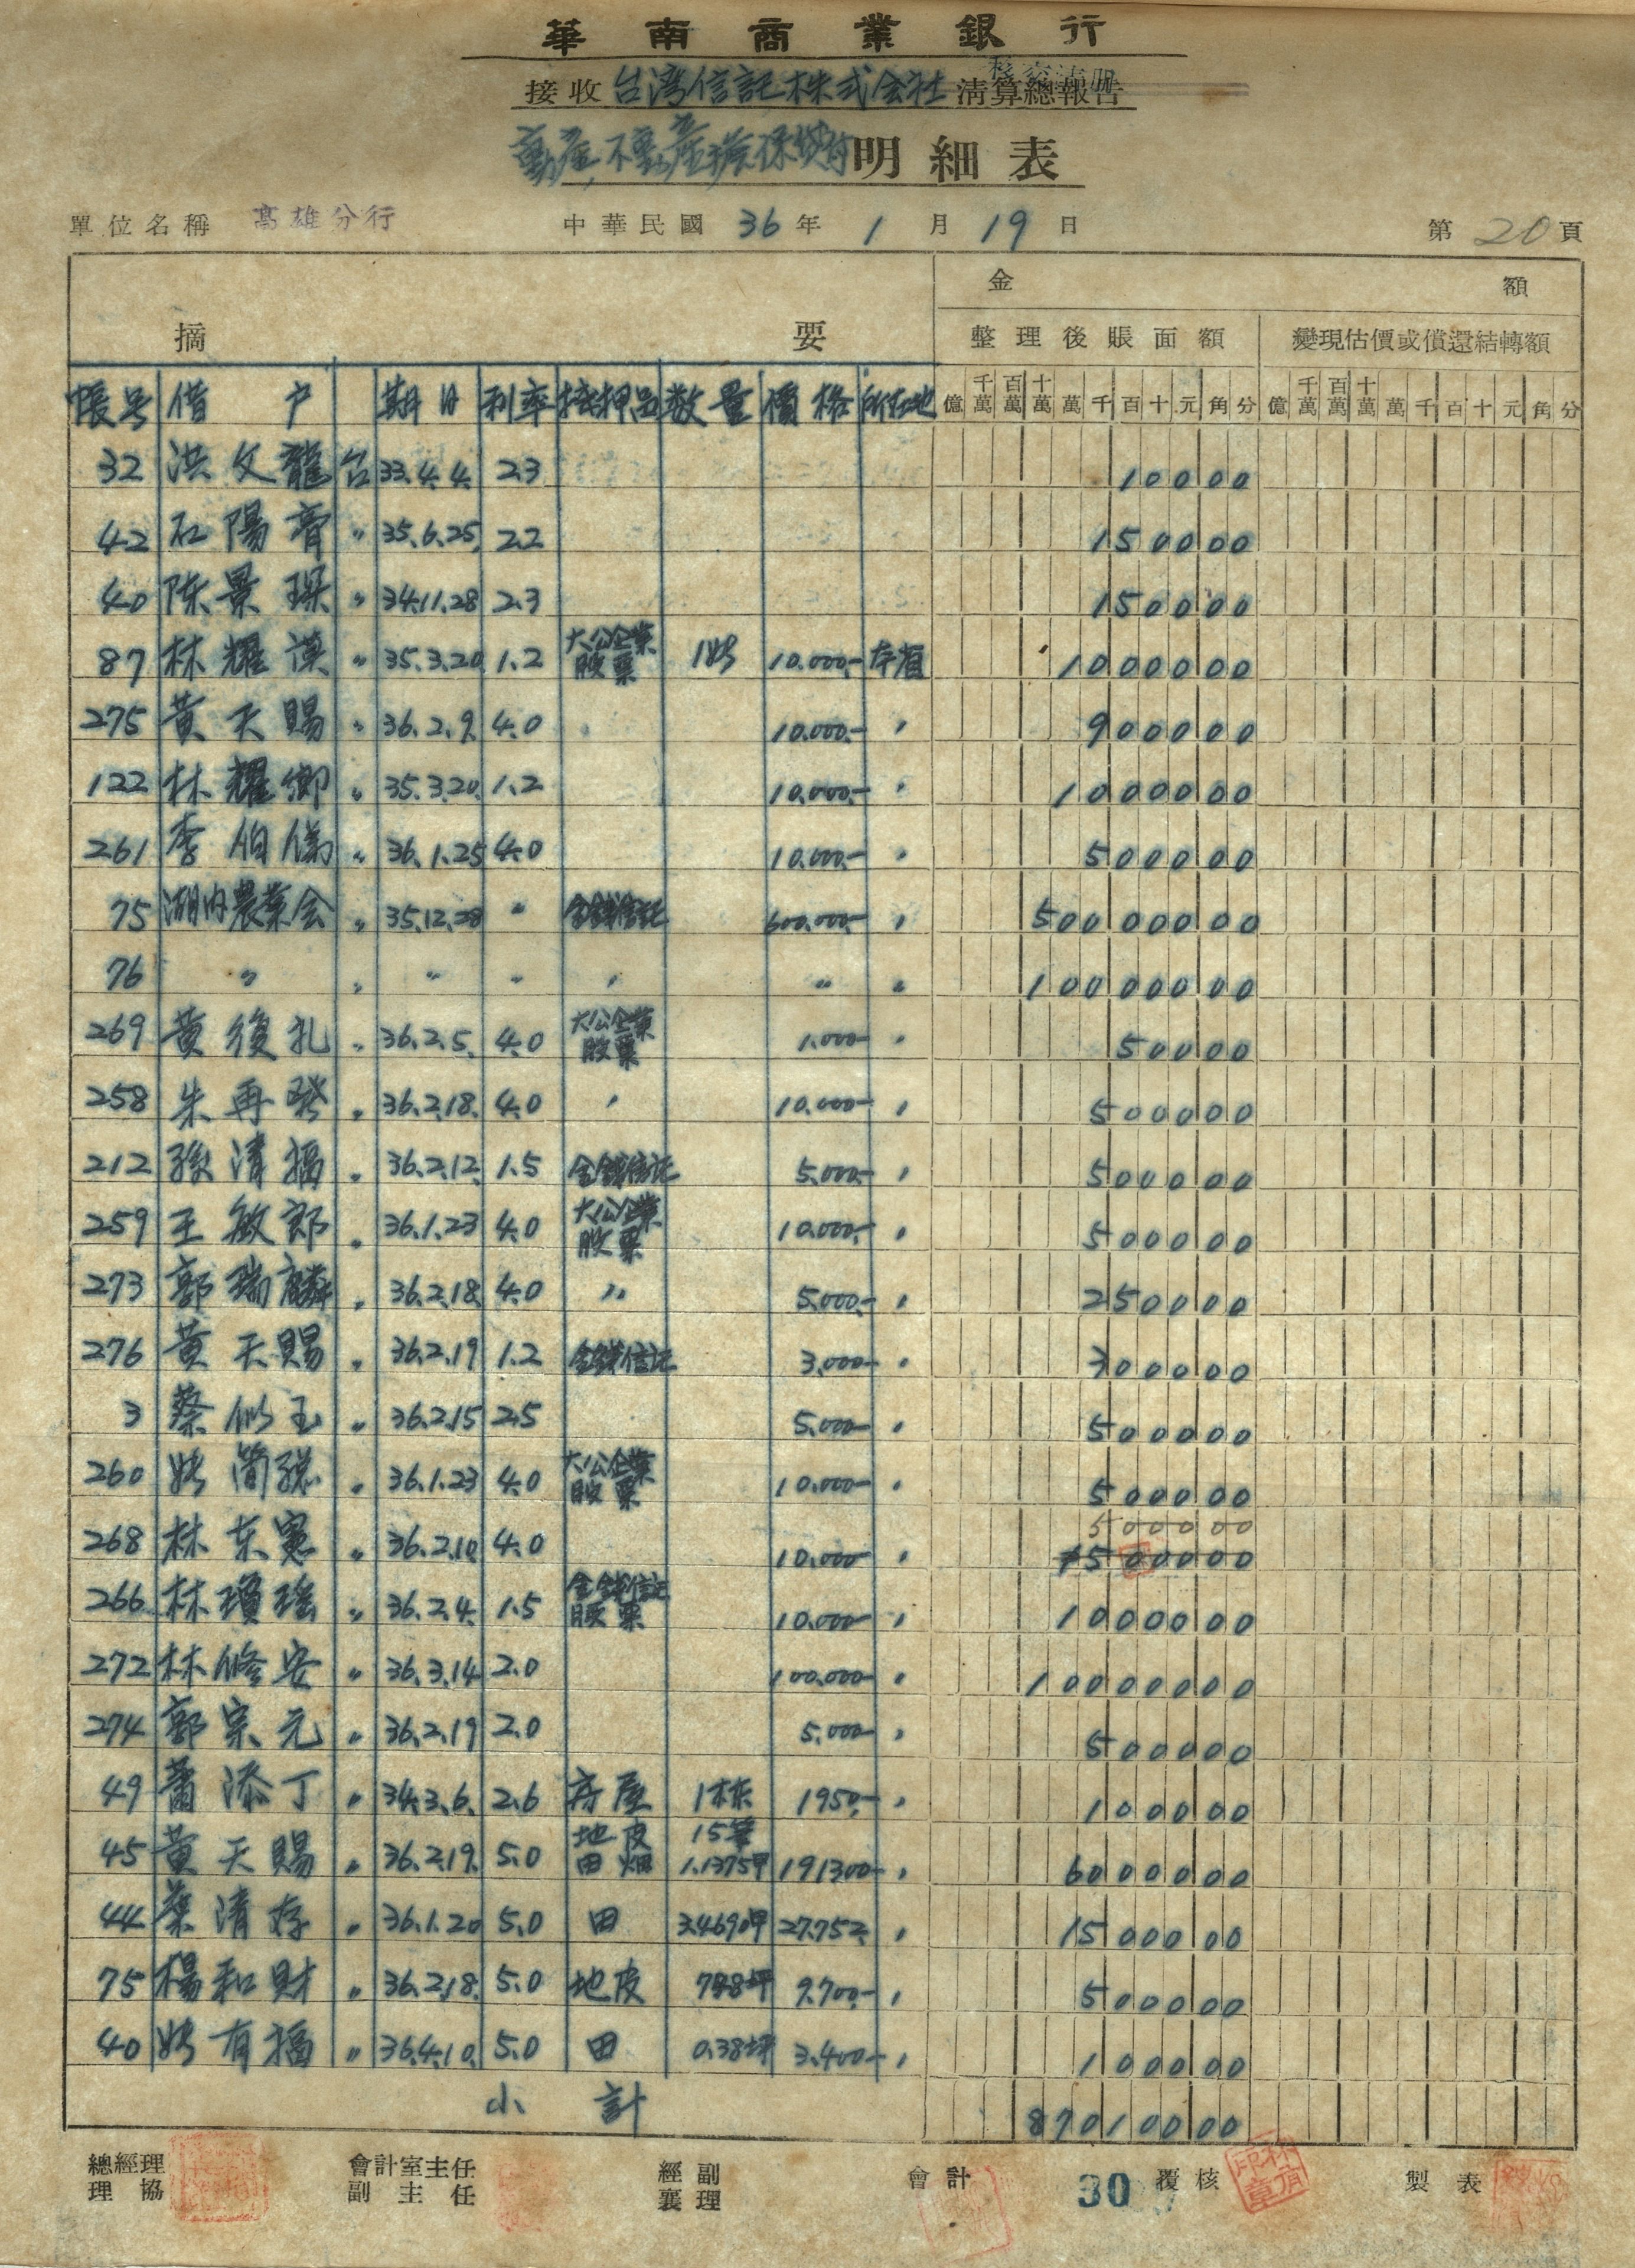 華南商業銀行
接收 台湾信託株式会社 清算總報告 移交清冊
動産,不動産擔保貸付 明細表
單位名稱 高雄分行 中華民國 36 年 1 月 19 日 第 20 頁
摘 要 金 額
整理後賬面額 變現估價或償還結轉額
帳号 借户 期日 利率 抵押品 数量 價格 所在地 億 千萬 百萬 十萬 萬 千 百 十 元 角 分 億 千萬 百萬 十萬 萬 千 百 十 元 角 分
32 洪文龍 台 33.4.4. 2.3 10000
42 石陽膏 〃 35.6.25. 2.2 150000
40 陈景琛 〃 34.11.28 2.3 150000
87 林耀漢 〃 35.3.20 1.2 大公企業股票 10.000.- 本省 1000000
275 黃天賜 〃 36.2.9. 4.0 〃 10.000.- 〃 900000
122 林耀鄉 〃 35.3.20. 1.2 10.000.- 〃 1000000
261 李伯儀 〃 36.1.25 4.0 10.000.- 〃 500000
75 湖内農業会 〃 35.12.28 〃 金錢信託 600.000.- 〃 50000000
76 〃 〃 〃 〃 〃 〃 〃 10000000
269 黃復礼 〃 36.2.5. 4.0 大公企業股票 1.000- 〃 50000
258 朱再發 〃 36.2.18. 4.0 〃 10.000- 〃 500000
212 孫清福 〃 36.2.12. 1.5 金錢信託 5.000.- 〃 500000
259 王敏郎 〃 36.1.23 4.0 大公企業股票 10.000.- 〃 500000
273 郭瑞麟 〃 36.2.18. 4.0 〃 5.000.- 〃 250000
276 黃天賜 〃 36.2.19 1.2 金錢信託 3.000- 〃 300000
3 蔡似玉 〃 36.2.15 2.5 5.000- 〃 500000
260 簡聰 〃 36.1.23 4.0 大公企業股票 10.000- 〃 500000
500000
268 林東憲 〃 36.2.10. 4.0 10.000- 〃 1500000
266 林瓊瑤 〃 36.2.4. 1.5 金錢信託股票 10.000- 〃 1000000
272 林修安 〃 36.3.14 2.0 100.000- 〃 10000000
274 郭宗元 〃 36.2.19 2.0 5.000- 〃 500000
49 蕭添丁 〃 34.3.6. 2.6 房屋 1栋 1950.- 〃 100000
45 黃天賜 〃 36.2.19. 5.0 地皮田畑 15筆 1.1375甲 191300- 〃 6000000
44 葉清存 〃 36.1.20 5.0 田 3.4690甲 27.752. 〃 1500000
75 楊和財 〃 36.2.18. 5.0 地皮 788坪 9.700.- 〃 500000
40 有福 〃 36.4.10. 5.0 田 0.38坪 3.400- 〃 100000
小計 87010000
總經理 協理 會計室主任 副主任 經副襄理 會計 30 覆核 製表